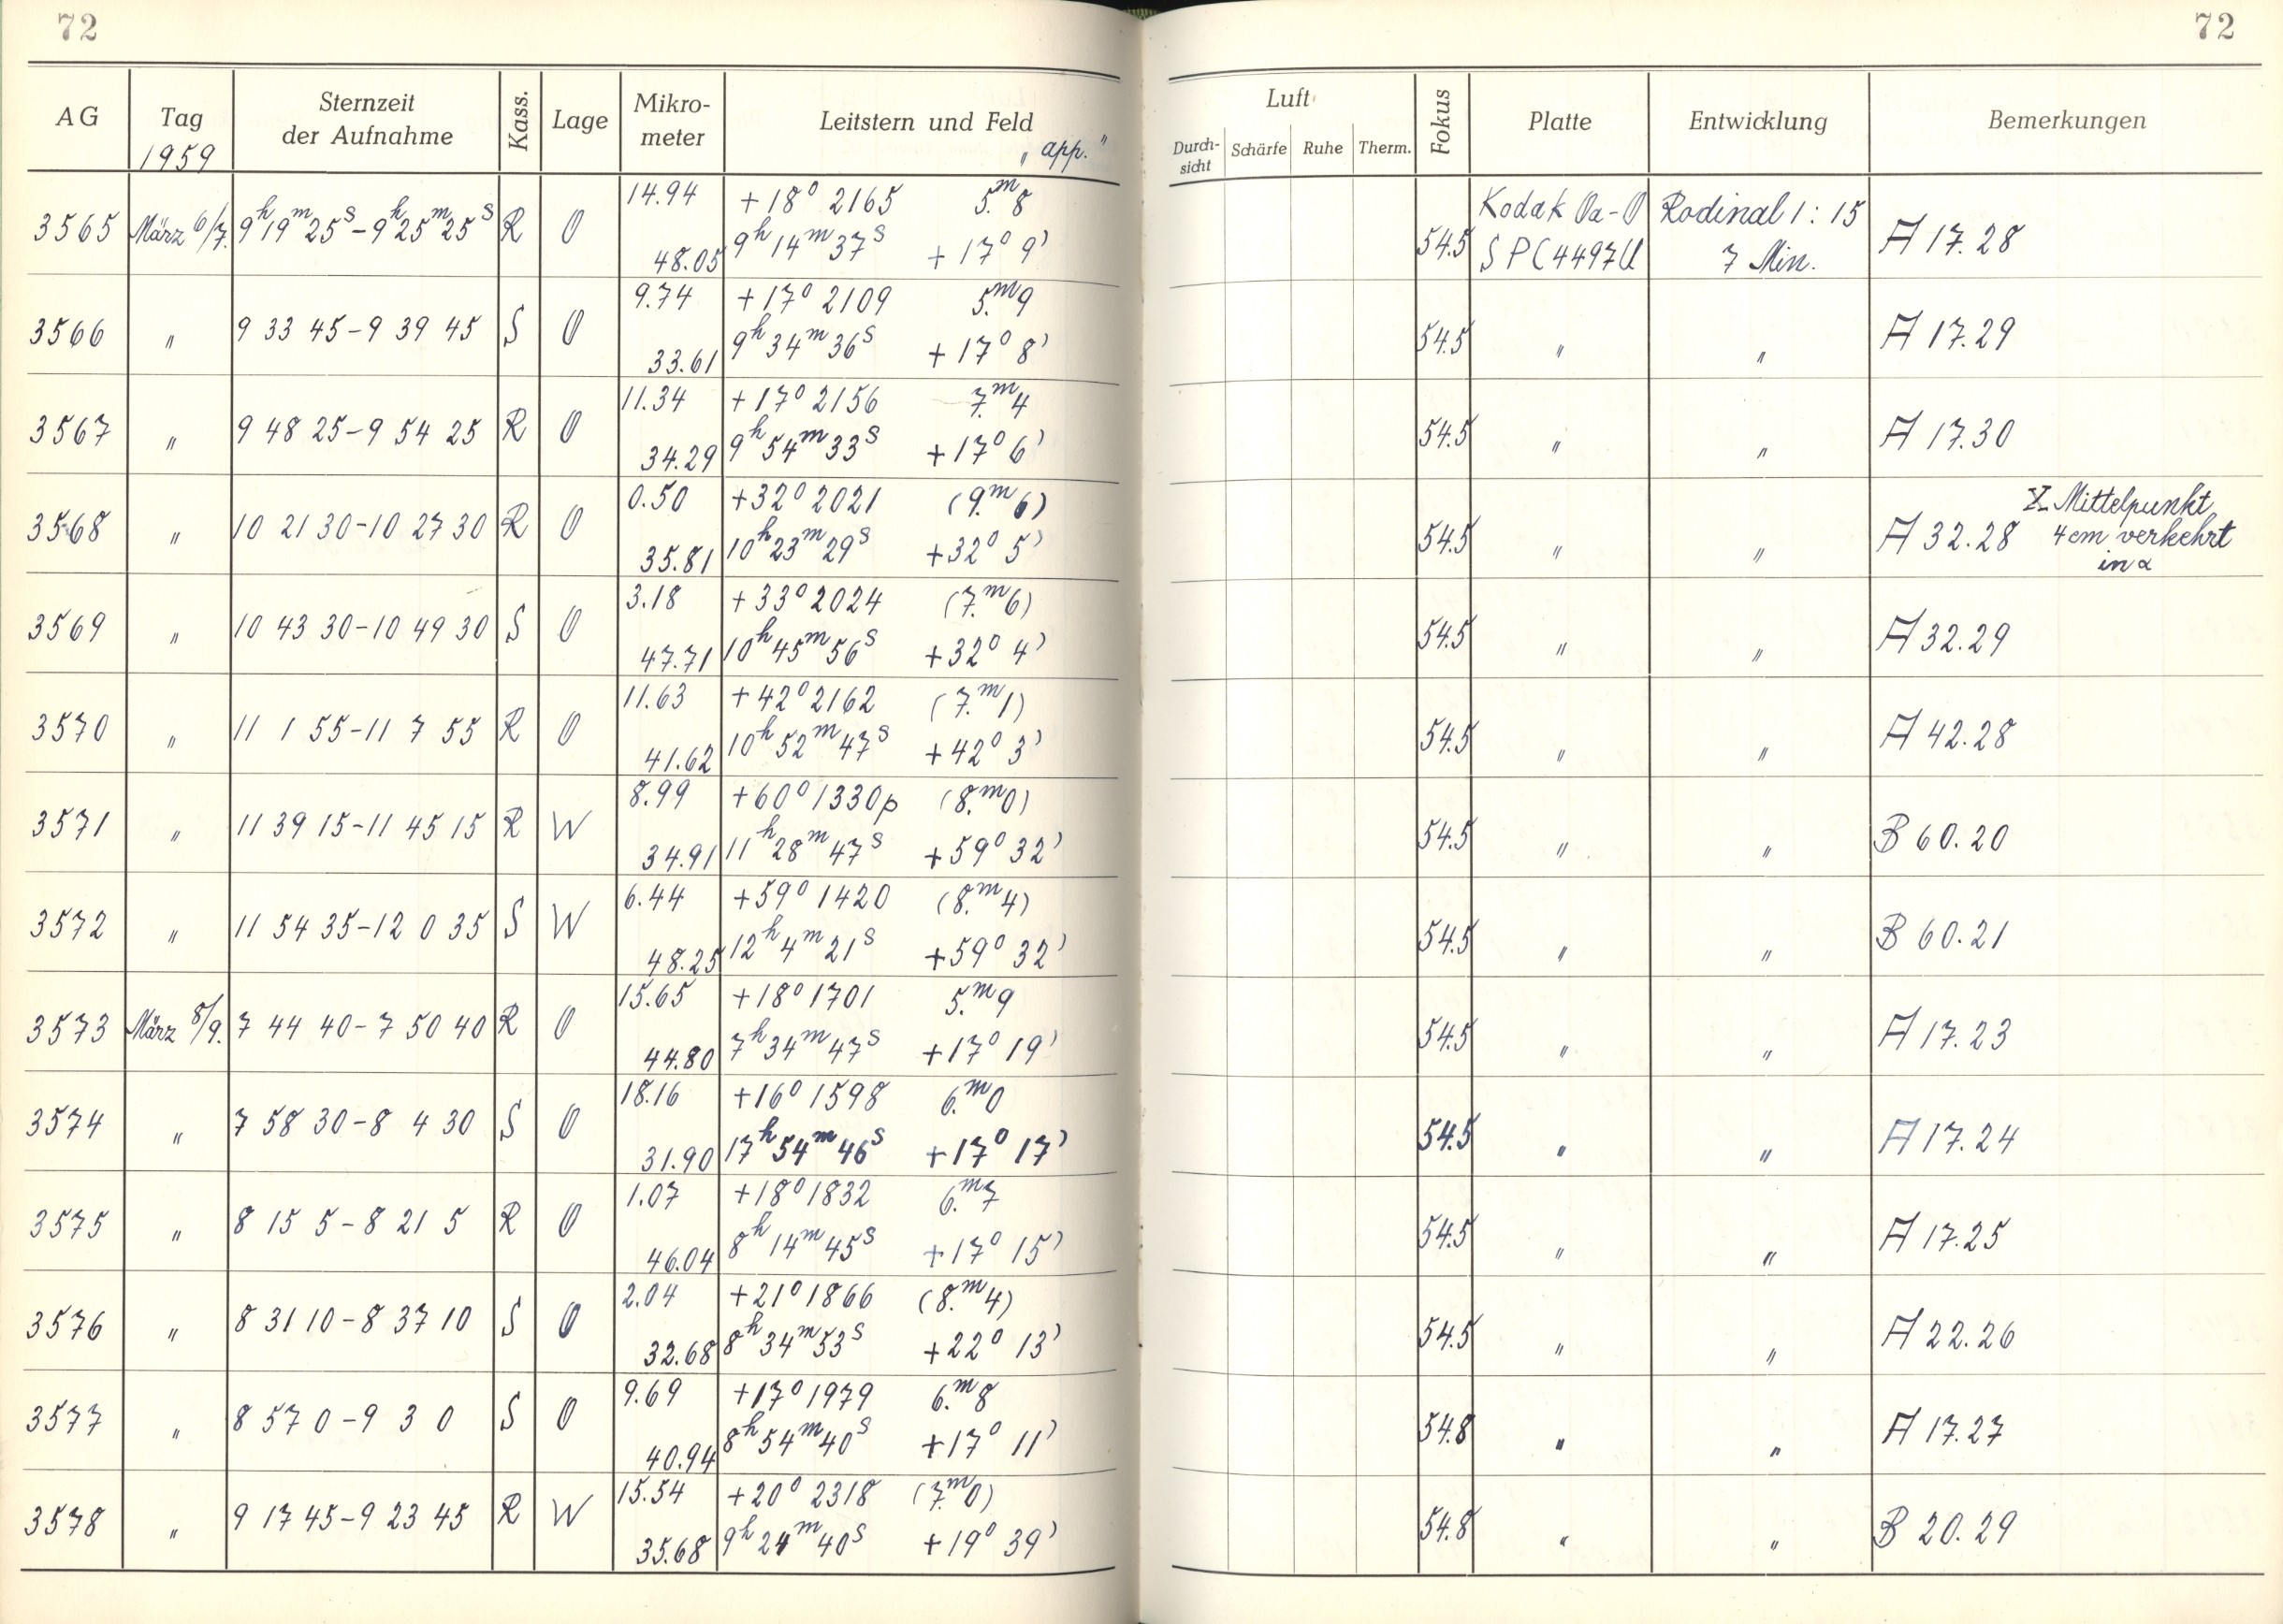 72 72
AG Tag 1959 Sternzeit der Aufnahme Kass. Lage Mikro-meter Leitstern und Feld „app.“ Luft Durch-sicht Schärfe Ruhe Therm. Fokus Platte Entwicklung Bemerkungen
14.94 +18° 2165 5.m8 Kodak Oa-O Rodinal 1:15
3565 März 6/7. 9h19m25s-9h25m25s R O 48.05 9h14m37s +17° 9' 54.5 7 Min. A 17.28
9.74 +17° 2109 5.m9
3566 " 9 33 45-9 39 45 S O 33.61 9h34m36s +17° 8' 54.5 " " A 17.29
11.34 +17° 2156 7.m4
3567 " 9 48 25-9 54 25 R O 34.29 9h54m33s +17° 6' 54.5 " " A 17.30
0.50 +32° 2021 (9.m6) Mittelpunkt
3568 " 10 21 30-10 27 30 R O 35.81 10h23m29s +32° 5' 54.5 " " A 32.28 4cm verkehrt
in α
3.18 +33° 2024 (7.m6)
3569 " 10 43 30-10 49 30 S O 47.71 10h45m56s +32° 4' 54.5 " " A 32.29
11.63 +42° 2162 (7.m1)
3570 " 11 1 55-11 7 55 R O 41.62 10h52m47s +42° 3' 54.5 " " A 42.28
8.99 +60° 1330p (8.m0)
3571 " 11 39 15-11 45 15 R W 34.91 11h28m47s +59° 32' 54.5 " " B 60.20
6.44 +59° 1420 (8.m4)
3572 " 11 54 35-12 0 35 S W 48.25 12h4m21s +59° 32' 54.5 " " B 60.21
15.65 +18° 1701 5.m9
3573 März 8/9. 7 44 40-7 50 40 R O 44.80 7h34m47s +17° 19' 54.5 " " A 17.23
18.16 +16° 1598 6.m0
3574 " 7 58 30-8 4 30 S O 31.90 17h54m46s +17° 17' 54.5 " " A 17.24
1.07 +18° 1832 6.m7
3575 " 8 15 5-8 21 5 R O 46.04 8h14m45s +17° 15' 54.5 " " A 17.25
2.04 +21° 1866 (8.m4)
3576 " 8 31 10-8 37 10 S O 32.68 8h34m53s +22° 13' 54.5 " " A 22.26
9.69 +17° 1979 6.m8
3577 " 8 57 0-9 3 0 S O 40.94 8h54m40s +17° 11' 54.8 " " A 17.27
15.54 +20° 2318 (7.m0)
3578 " 9 17 45-9 23 45 R W 35.68 9h24m40s +19° 39' 54.8 " " B 20.29